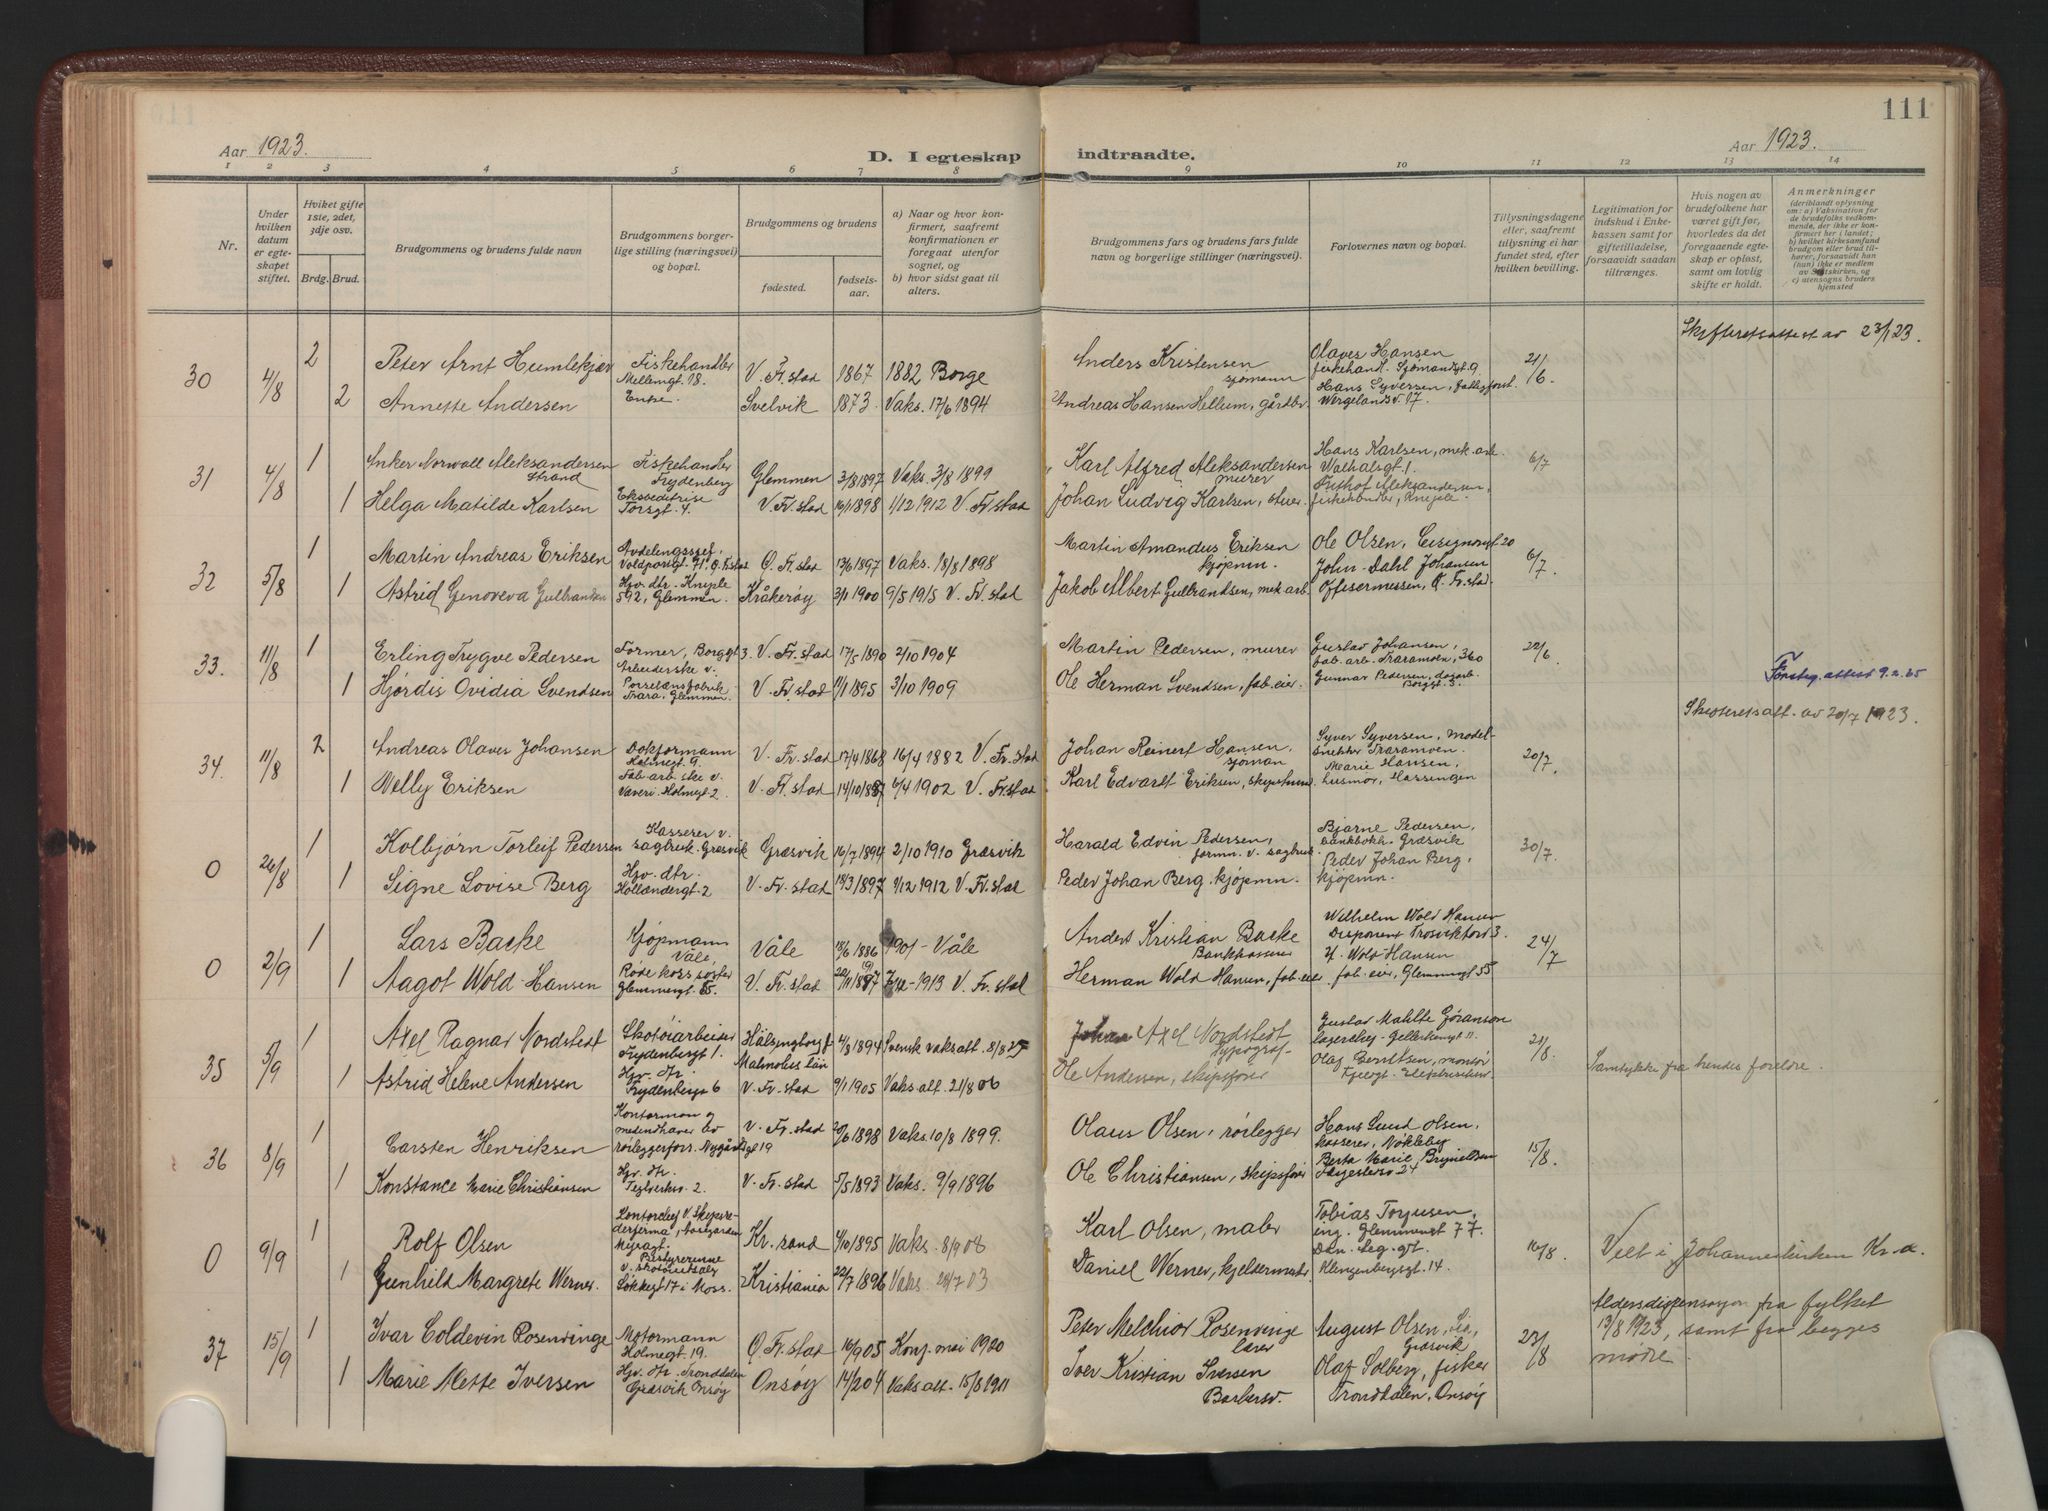 111
Aar 1923.
D. I egteskap indtraadte.
Aar 1923.
1 2 3 4 5 6 7 8 9 10 11 12 13 14
Nr.
Under hvilken datum er egteskapet stiftet.
Hviket gifte 1ste, 2det, 3dje osv.
Brdg. Brud.
Brudgommens og brudens fulde navn
Brudgommens borgerlige stilling (næringsvei) og bopæl.
Brudgommens og brudens
fødested.
fødselsaar.
a) Naar og hvor konfirmert, saafremt konfirmationen er foregaat utenfor sognet, og
b) hvor sidst gaat til alters.
Brudgommens fars og brudens fars fulde navn og borgerlige stillinger (næringsvei).
Forlovernes navn og bopæl.
Tillysningsdagene eller, saafremt tillysning ei har fundet sted, efter hvilken bevilling.
Legitimation for indskud i Enkekassen samt for giftetilladelse, forsaavidt saadan tiltrænges.
Hvis nogen av brudefolkene har været gift før, hvorledes da det foregaaende egteskap er opløst, samt om lovlig skifte er holdt.
Anmerkninger
(deriblandt oplysning om: a) Vaksination for de brudefolks vedkommende, der ikke er konfirmert her i landet; b) hvilket kirkesamfund brudgom eller brud tilhører, forsaavidt han (hun) ikke er medlem av Statskirken, og c) utensogns bruders hjemsted
Skifteretsattest av 23/1 23.
30 4/8 2 Peter Arnt Humlekjær Fiskehandler Mellemgt. 18. V. Fr.stad 1867 1882 Borge Anders Kristensen sjømann Olaves Hansen fiskehandl. Sjømandsgt. 9. 21/6.
2 Annette Andersen Enke. Svelvik 1873. Vaks. 17/6 1894 Andreas Hansen Hellum, gårdbr. Hans Syversen, Wergelandsv. 17.
31 4/8 1 Anker Norwall Aleksandersen Strand Fiskehandler Frydenberg Glemmen 3/8 1897 Vaks. 3/8 1899 Karl Alfred Aleksandersen murer Hans Karlsen, mek. arb. Walhalsgt. 1. 6/7
1 Helga Matilde Karlsen Ekspeditrise Torsgt. 4. V. Fr.stad 16/1 1898 1/12 1912 V. Fr.stad Johan Ludvig Karlsen, stuer. Aleksandersen, fiskehandler, Kniple.
32 5/8 1 Martin Andreas Eriksen Avdelingssjef. Voldportgt. 71. Ø. Fr.stad Ø. Fr.stad 13/6 1897 Vaks. 18/8 1898 Martin Amandus Eriksen kjøpmn. Ole Olsen, 20 6/7.
1 Astrid Genoveva Gulbrandsen Hjv. dtr. Kniple 592, Glemmen. Kråkerøy 3/1 1900 9/5 1915 V. Fr.stad Jakob Albert Gulbrandsen, mek. arb. John Dahl Johansen Offisermessen, Ø. Fr.stad.
33. 11/8 1 Erling Trygve Pedersen Former, Borggt. 3. V. Fr.stad 17/5 1890 2/10 1904 Martin Pedersen, murer Gustav Johansen, fab. arb. Traramoen, 360 22/6.
1 Hjørdis Ovidia Svendsen Arbeiderske v. Porselensfabrik Trara, Glemmen. V. Fr.stad 11/1 1895 3/10 1909 Ole Herman Svendsen, fab. eier. Gunnar Pedersen, dagarb. Borggt. 3.
attest 9.2.65
Skifteretsatt. av 20/7 1923.
34. 11/8 2 Andreas Olaves Johansen Dokformann Holmegt. 9. V. Fr.stad 17/4 1868 16/4 1882 V. Fr.stad Johan Reinert Hansen, sjøman Syver Syversen, modelsnekker Traramoen. 20/7.
1 Welly Eriksen Fab. arb. ske v. Væveri. Holmegt. 2 V. Fr.stad 14/10 1887 6/4 1902 V. Fr.stad Karl Edvardt Eriksen, Marie Hansen, husmor, Hassingen
0 26/8 1 Kolbjørn Torleif Pedersen Kasserer v. sagbruk. Græsvik Græsvik 16/7 1894 2/10 1910 Græsvik Harald Edvin Pedersen, formn. v. sagbruk. Bjarne Pedersen, bankbokh. Græsvik 30/7.
1 Signe Lovise Berg Hjv. dtr. Hollendergt. 2 V. Fr.stad 18/3 1897 1/12 1912 V. Fr.stad Peder Johan Berg. kjøpmn. Peder Johan Berg, kjøpmn.
0 2/9 1 Lars Backe Kjøpmann Våle, Våle 18/6 1886 1901 - Våle Anders Kristian Backe Bankkasserer Wilhelm Wold Hansen Disponent 24/7
1 Aagot Wold-Hansen Røde kors søster Glemmengt. 55. V. Fr.stad 1897 1913 V. Fr.stad Herman Wold Hansen, fab. eier H. Wold-Hansen fab. eier, Glemmengt 55
35 5/9 1 Axel Ragnar Nordstedt Skotøiarbeider Frydenbergt 1. Hälsingborg Malmøhus län 4/3 1894 Svensk vaks att. 8/8 Axel Nordstedt Typograf Gustav Malte Gøranson 21/8.
1 Astrid Helene Andersen Hjv. dtr. Frydenbergt 6 V. Fr.stad 9/1 1905 Vaks att. 21/8 06 Ole Andersen, skipsfører Olaf Berntsen, montør Samtykke fra hendes foreldre.
36 8/9 1 Carsten Henriksen Kontorman og medindehaver av rørleggerforr. Nygårdsgt 19 V. Fr.stad 20/6 1898 Vaks. 10/8 1899. Olaus Olsen, rørlegger Hans Lund Olsen, kasserer, Nøkleby 15/8.
1 Konstance Marie Christiansen Hjv. dtr. Teglverksv. 2. V. Fr.stad 5/5 1893 Vaks. 9/9 1896 Ole Christiansen, skipsfører Berta Marie Brynildsen 24
0 9/9 1 Rolf Olsen Kontorchef v. Skipsrederfirma, Myragt. Kr.sand 4/10 1895 Vaks. 8/9 08 Karl Olsen, maler Tobias Torjusen, eng. Glemmengt 77. 16/8.
1 Gunhild Margrete Werner. Bestyrerinne v. skotøiutsalg Løkkegt 17 i Moss. Kristiania 22/7 1896 Vaks. 24/7 03 Daniel Werner, kjeldermester Klingenberggt. 14. Viet i Johanneskirken Kr.a.
37 15/9 1 Ivar Coldevin Rosenvinge Motormann Holmegt. 19. Ø. Fr.stad 16/9 05 Konf. mai 1920 Peter Melchior Rosenvinge lærer August Olsen, Græsvik 23/8 Aldersdispensasjon fra fylket 13/8 1923, samt fra begges mødre.
1 Marie Mette Iversen Hjv. dtr. Tronddalen Græsvik Onsøy Onsøy 14/2 04 Vaks att. 15/8 1911 Iver Kristian Iversen Barbersv. Olaf Solberg, fisker Trondalen, Onsøy